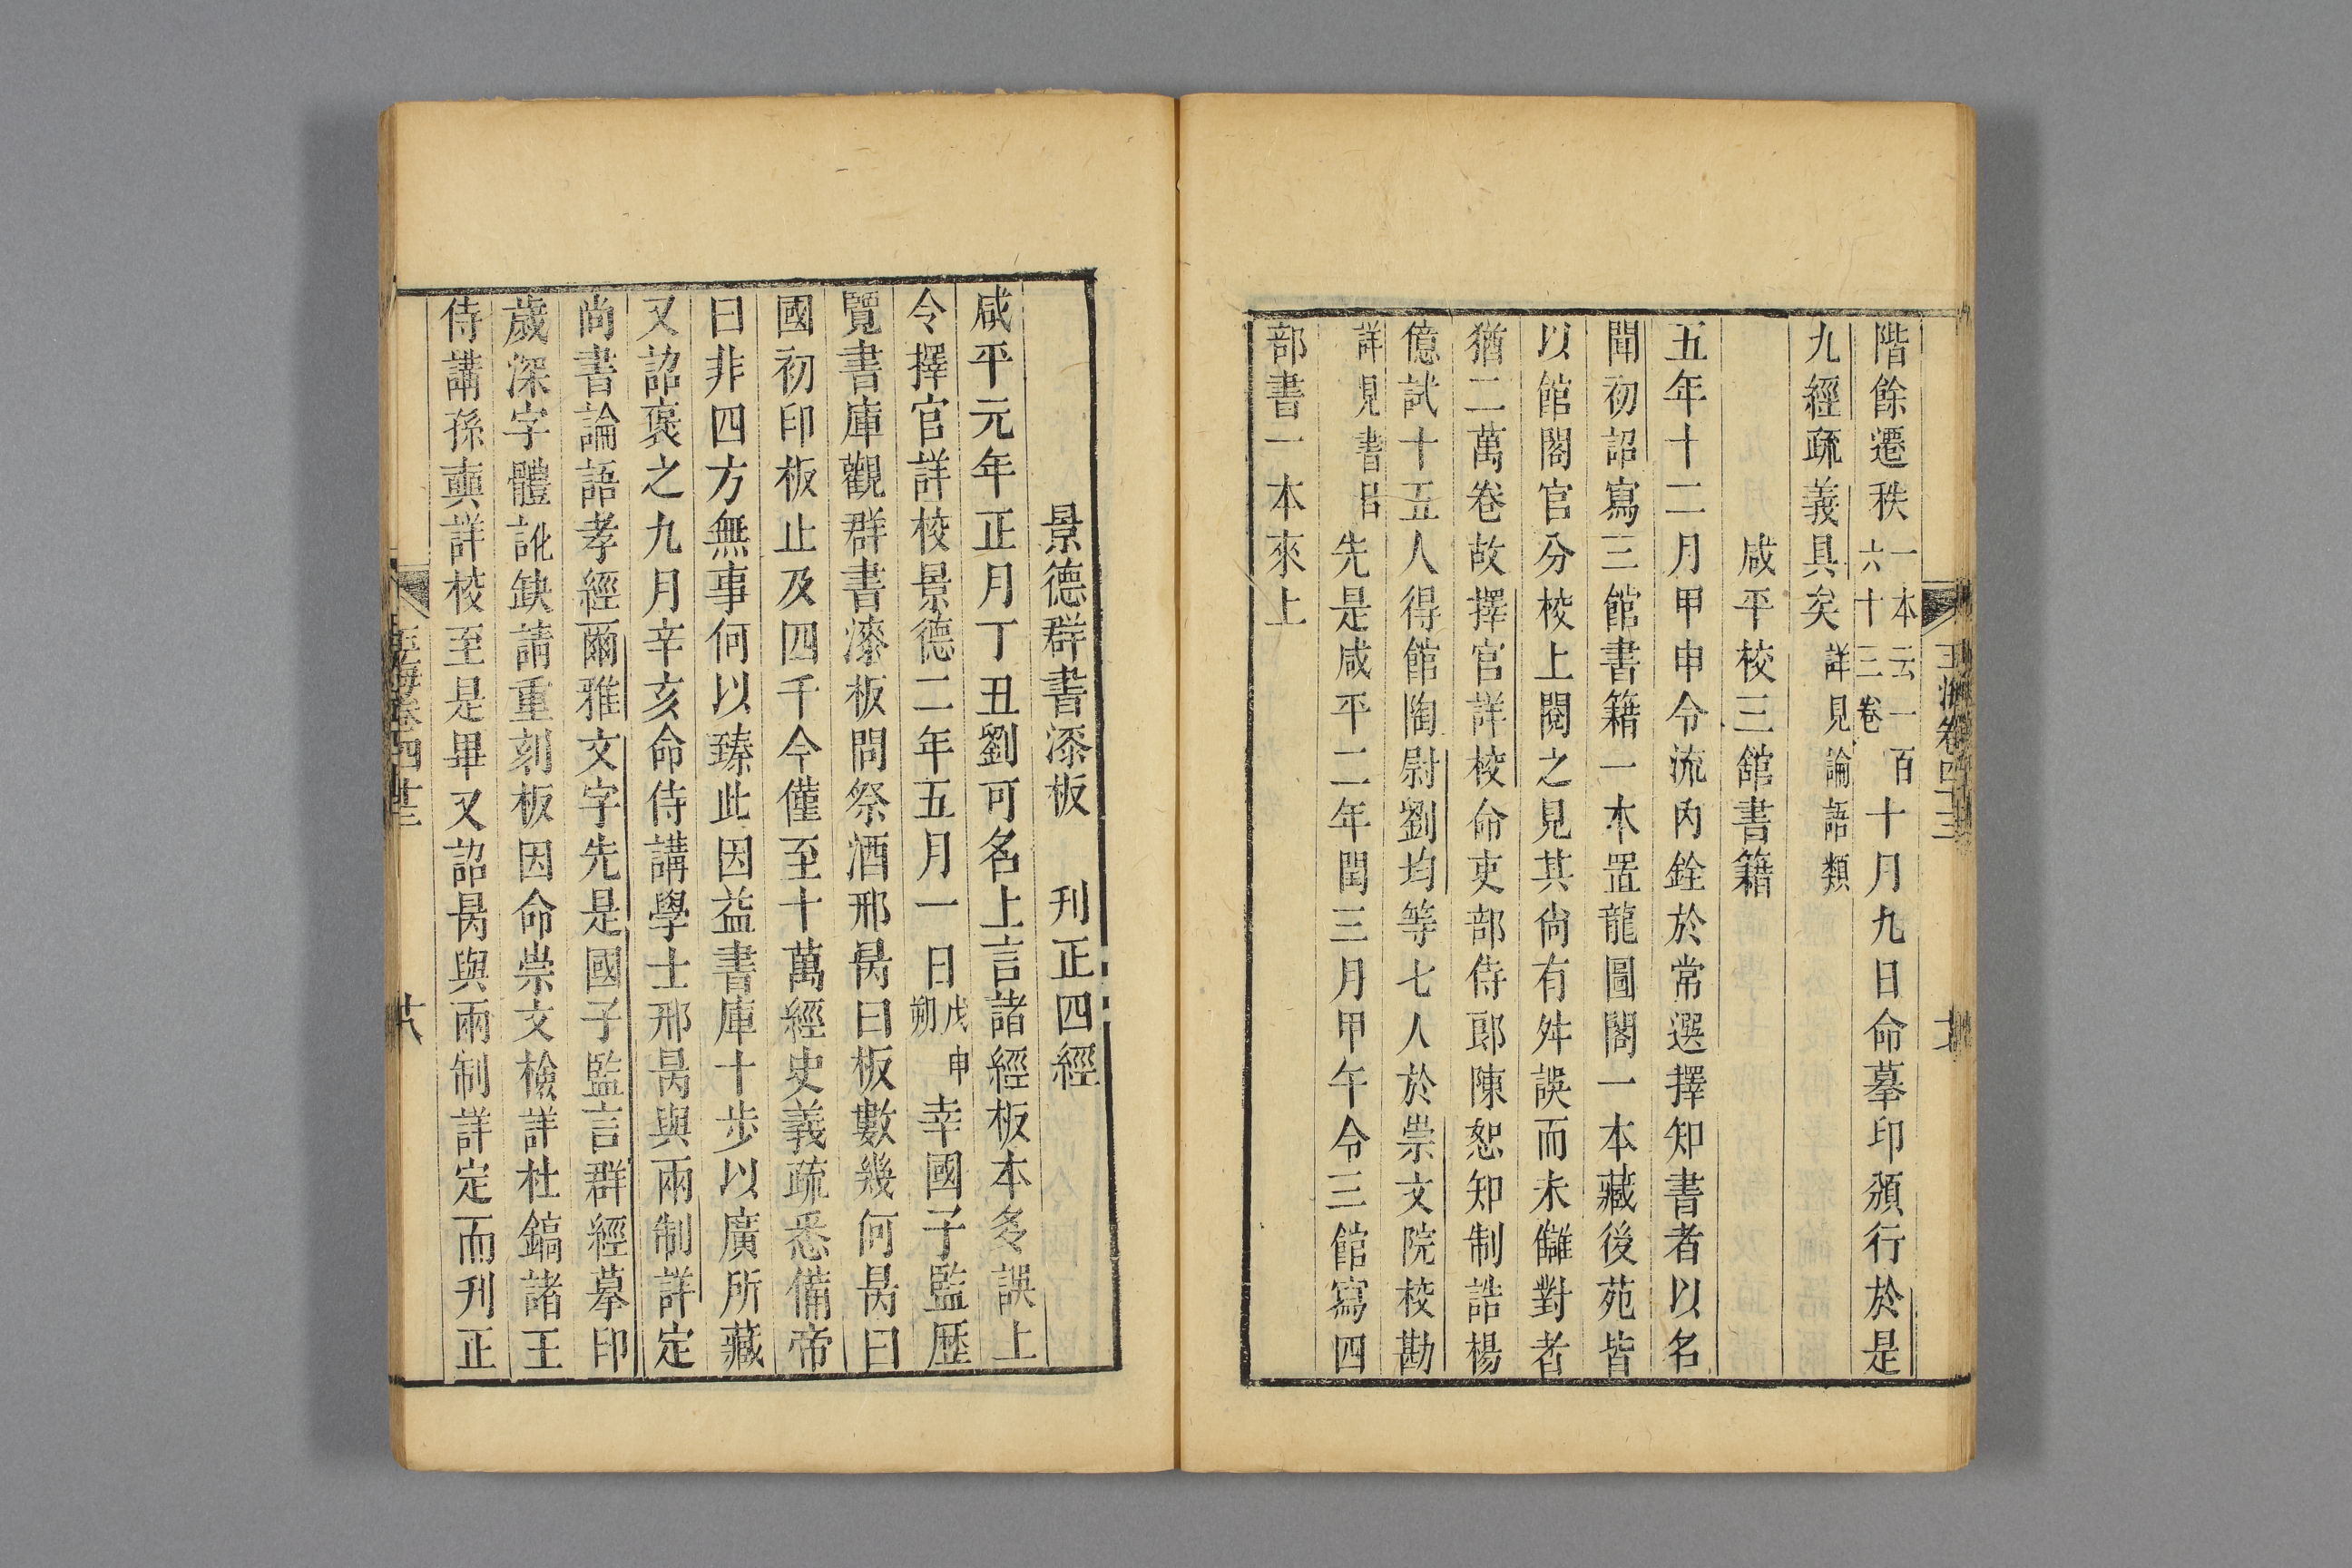 階餘遷秩一本云一百六十三卷十月九日命摹印頒行於是
九經疏義具矣詳見論語類
咸平校三舘書籍
五年十二月甲申令流內銓於常選擇知書者以名
聞初詔寫三館書籍一本置龍圖閣一本藏後苑皆
以館閣官分校上閱之見其尙有舛誤而未讎對者
猶二萬卷故擇官詳校命吏部侍郎陳恕知制誥楊
億試十五人得館陶尉劉均等七人於崇文院校勘
詳見書目先是咸平二年閏三月甲午令三館寫四
部書一本來上
景德群書漆板 刋正四經
咸平元年正月丁丑劉可名上言諸經板本多誤上
令擇官詳校景德二年五月一日戊申朔幸國子監歷
覽書庫觀群書漆板問祭酒邢昺曰板數幾何昺曰
國初印板止及四千今僅至十萬經史義疏悉備帝
曰非四方無事何以臻此因益書庫十步以廣所藏
又詔褒之九月辛亥命侍講學士邢昺與兩制詳定
尚書論語孝經爾雅文字先是國子監言群經摹印
歲深字體訛缺請重刻板因命崇文檢詳杜鎬諸王
侍講孫奭詳校至是畢又詔昺與兩制詳定而刋正
玉海卷四十三